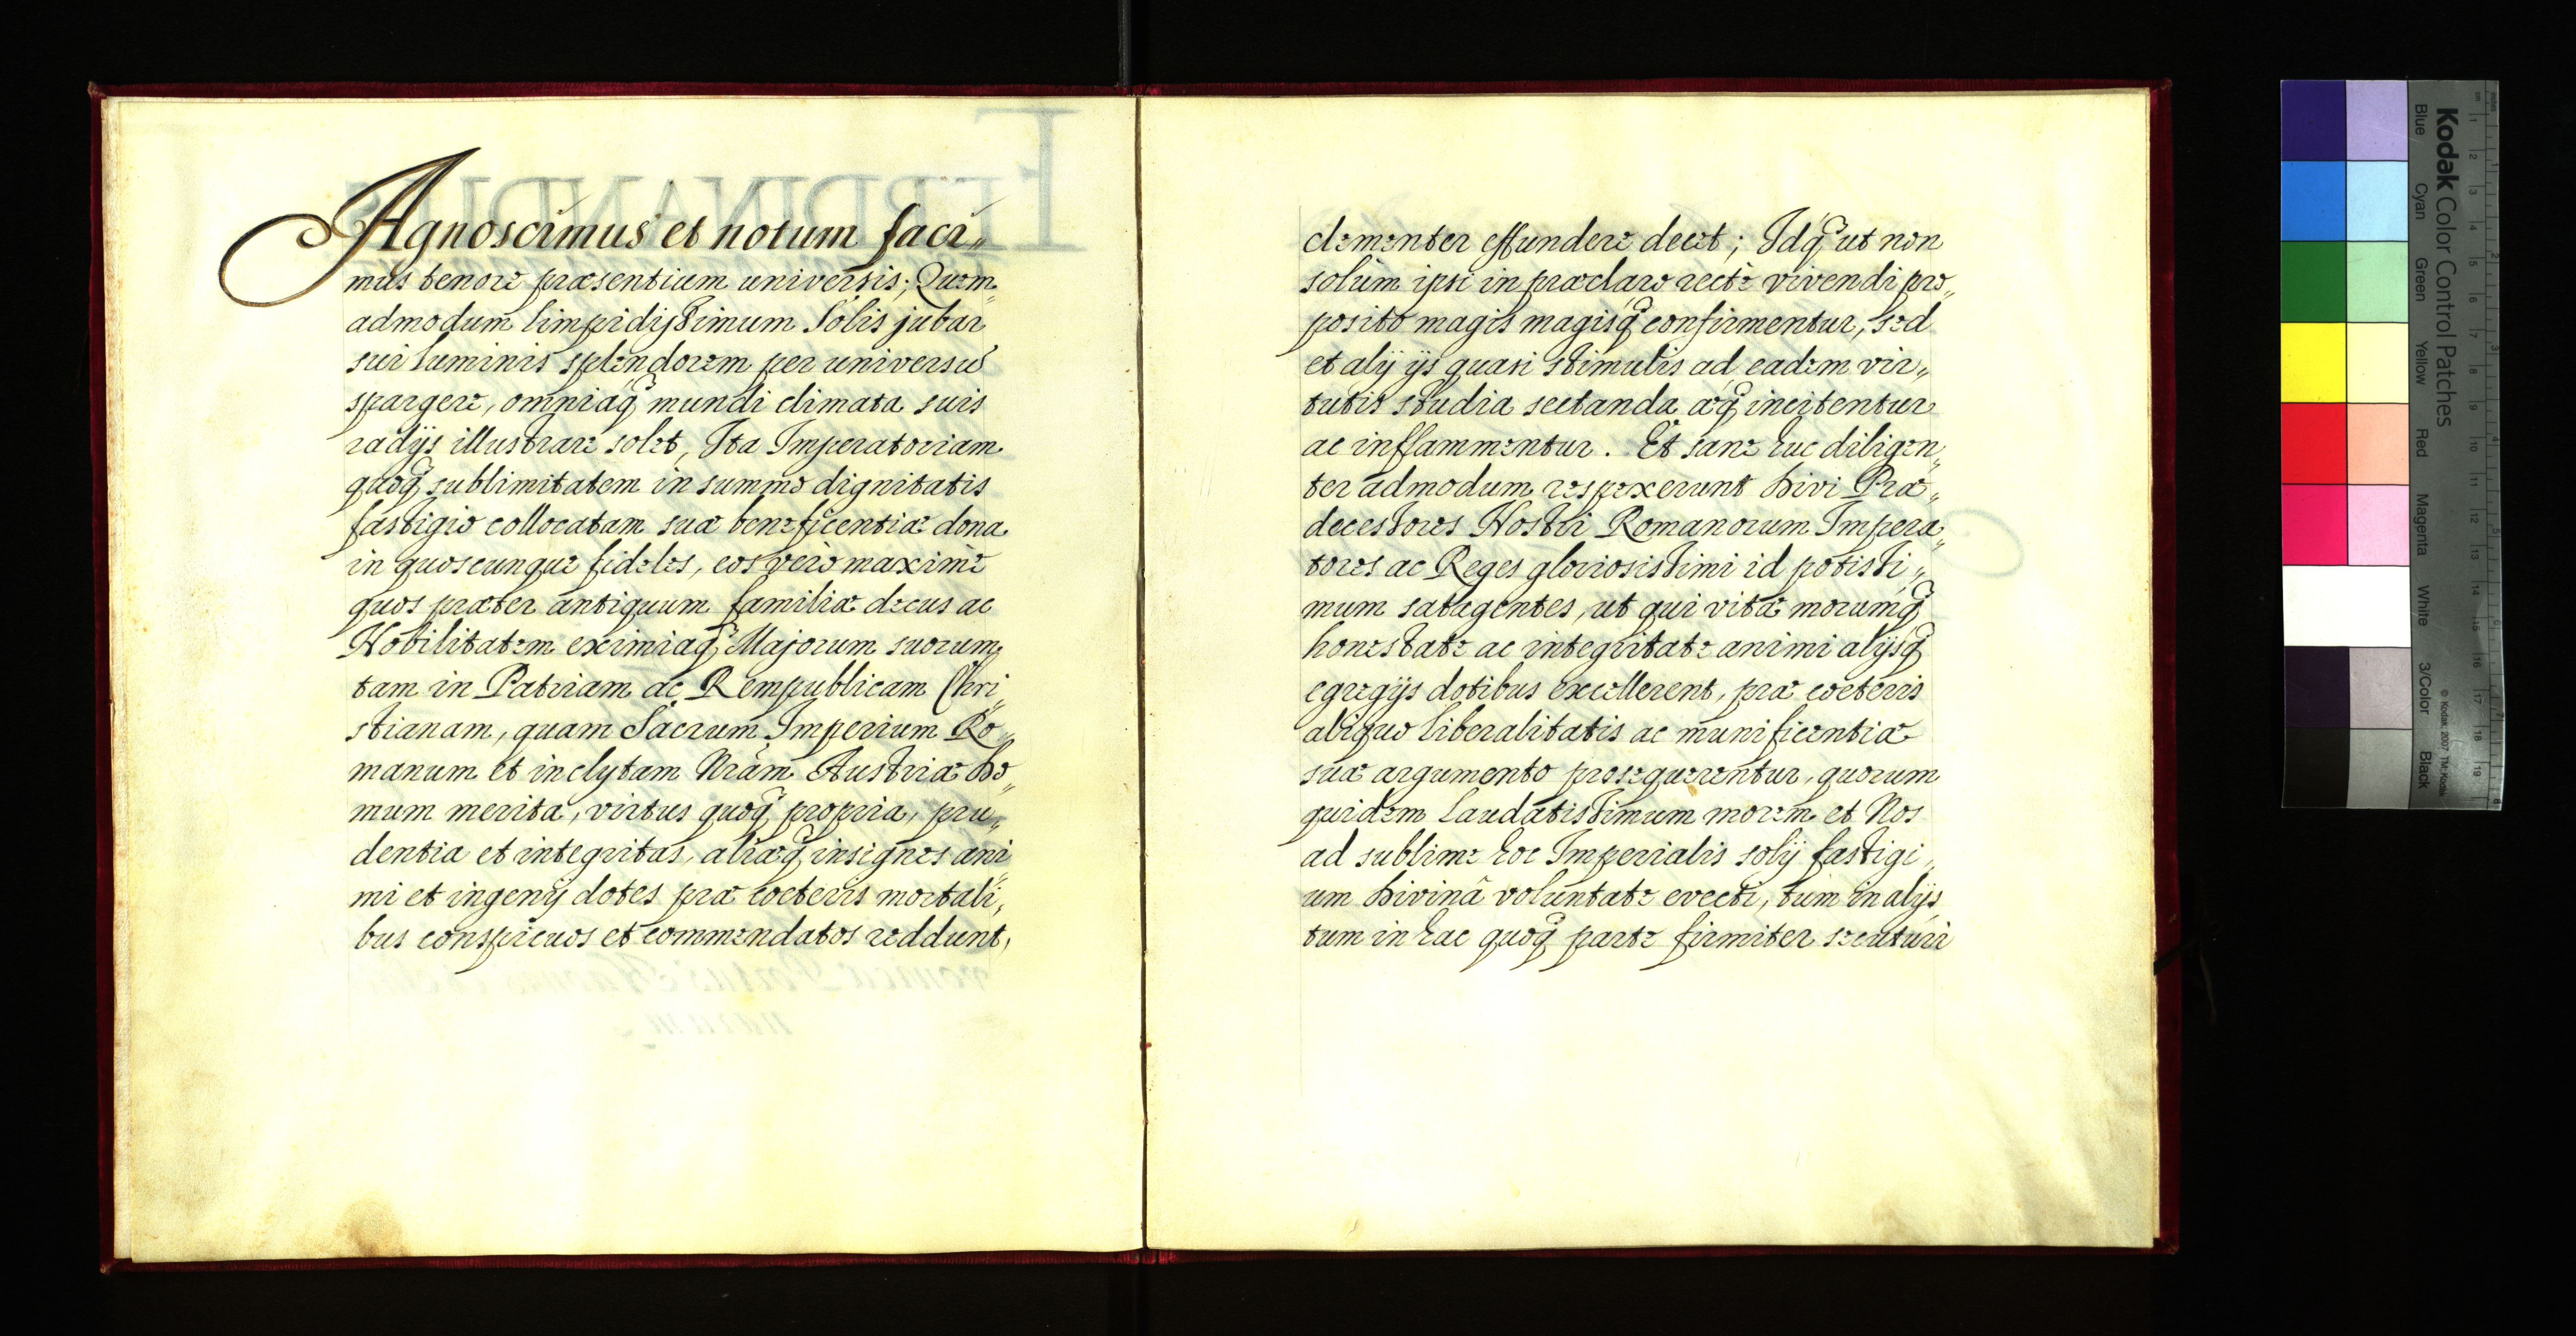 Agnoscimus et notum faci„
mus tenore præsentium universis; Quem„
admodum limpidissimum Solis jubar
sui luminis splendorem per universũ
spargere, omniaq̃ mundi climata suis
radijs illustrare solet, Ita Imperatoriam
quoq̃ sublimitatem in summo dignitatis
fastigio collocatam suæ beneficentiæ dona
in quoscunque fideles, eos verò maximè
quos præter antiquum familiæ decus ac
Nobilitatem eximiaq̃ Majorum suorum
tam in Patriam ac Rempublicam Chri„
stianam, quam Sacrum Imperium Ro„
manum et inclytam Nram Austriæ Do„
mum merita, virtus quoq̃ propria, pru„
dentia et integritas, aliæq̃ insignes ani„
mi et ingenij dotes præ cœteris mortali„
bus conspicuos et commendatos reddunt,
clementer effundere decet; Idq̃ ut non
solùm ipsi in præclaro rectè vivendi pro„
posito magis magisq̃ confirmentur, sed
et alij ijs quasi stimulis ad eadem vir„
tutis studia sectanda æq̃ incitentur
ac inflammentur. Et sane huc diligen„
ter admodum respexerunt Divi Præ„
decessores Nostri Romanorum Impera„
tores ac Reges gloriosissimi id potissi„
mum satagentes, ut qui vitæ morumq̃
honestate ac integritate animi alijsq̃
egregijs dotibus excellerent, præ cœteris
aliquo liberalitatis ac munificentiæ
suæ argumento prosequerentur, quorum
quidem laudatissimum morem et Nos
ad sublime hoc Imperialis solij fastigi„
um Divinâ voluntate evecti, tum in alijs
tum in hac quoq̃ parte firmiter secuturi
FERDINANDUS
Kodak Color Control Patches
Blue Cyan Green Yellow Red Magenta White 3/Color Black
© Kodak, 2007 TM: Kodak